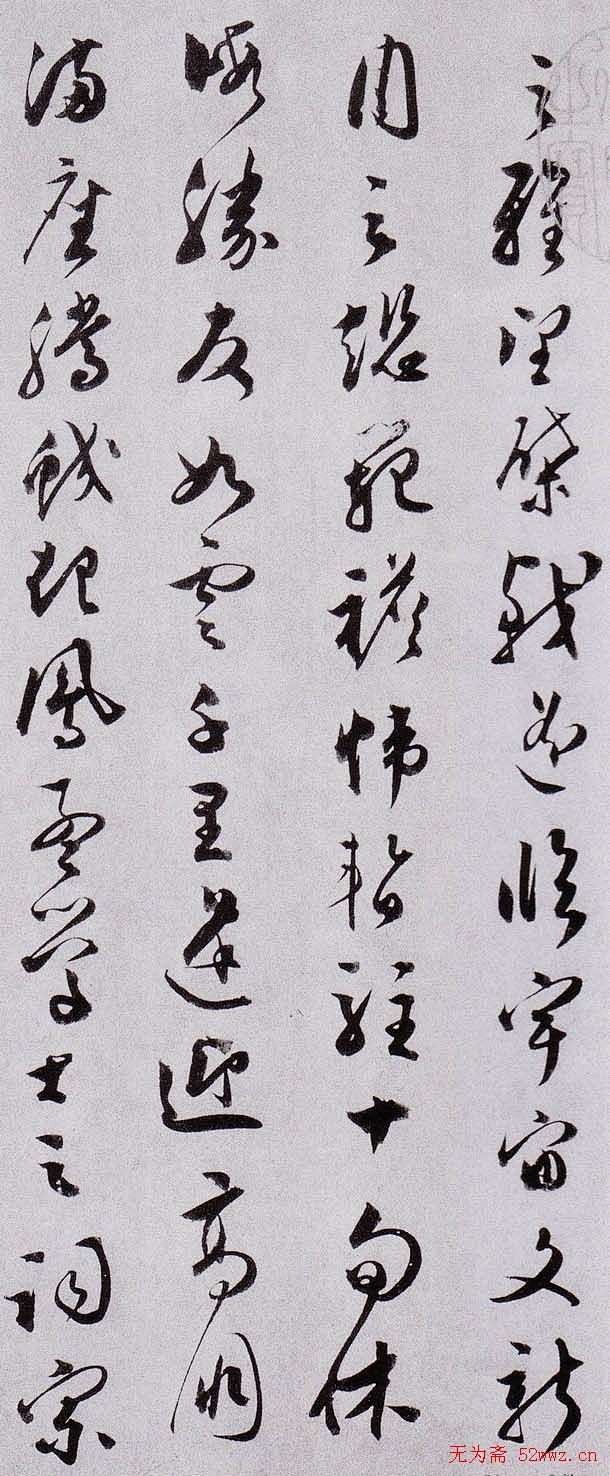 之雅望棨戟遙臨宇宙文新
周之懿範襜帷暫駐十旬休
假勝友如雲千里逢迎高朋
滿座騰蛟起鳳孟學士之詞宗
无为斋 52wwz.cn